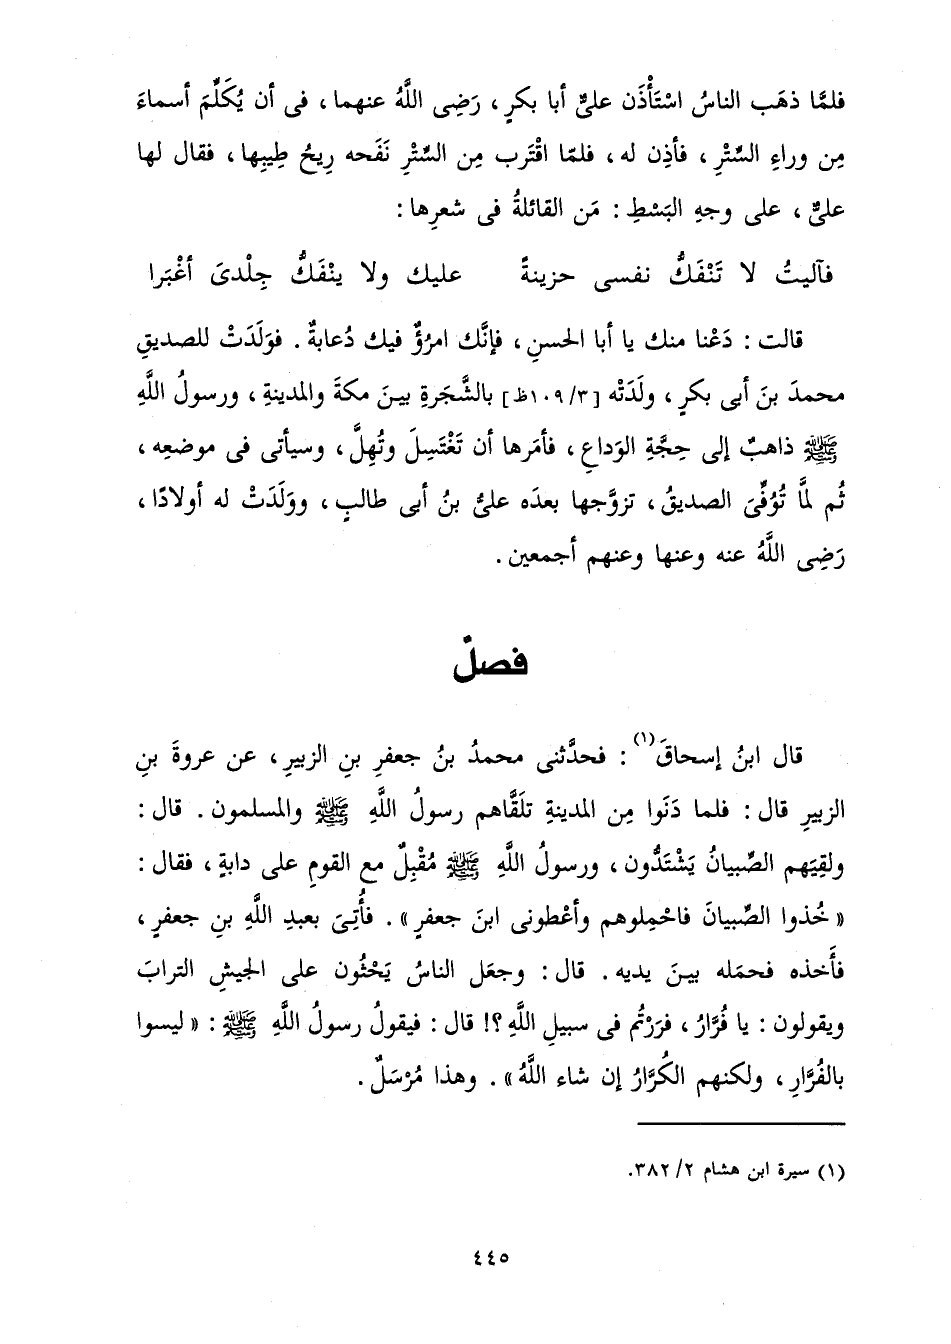 فلمَّا ذهَب الناسُ اسْتَأْذَن علىٌّ أبا بكرٍ، رَضِى اللَّهُ عنهما، فى أن يُكَلِّمَ أسماءَ
مِن وراءِ السِّتْرِ، فأذِن له، فلمّا اقْتَرب مِن السِّتْرِ نَفَحه رِيحُ طِيبِها، فقال لها
علىٌّ، على وجهِ البَسْطِ: مَن القائلةُ فى شعرِها:
فآليتُ لا تَنْفَكُّ نفسى حزينةً عليك ولا ينْفَكُّ جِلْدىَ أغْبَرا
قالت: دَعْنا منك يا أبا الحسنِ، فإنَّك امرُؤٌ فيك دُعابةٌ. فوَلَدَتْ للصديقِ
محمدَ بنَ أبى بكرٍ، ولَدَتْه [٣/ ١٠٩ظ] بالشَّجَرةِ بينَ مكةَ والمدينةِ، ورسولُ اللَّهِ
ﷺ ذاهبٌ إلى حِجَّةِ الوَداعِ، فأمَرها أن تَغْتَسِلَ وتُهِلَّ، وسيأتى فى موضعِه،
ثُم لمَّا تُوُفِّىَ الصديقُ، تزوَّجها بعدَه علىُّ بنُ أبى طالبٍ، ووَلَدَتْ له أولادًا،
رَضِى اللَّهُ عنه وعنها وعنهم أجمعين.
فصلٌ
قال ابنُ إسحاقَ(١): فحدَّثنى محمدُ بنُ جعفرِ بنِ الزبيرِ، عن عروةَ بنِ
الزبيرِ قال: فلما دَنَوا مِن المدينةِ تلَقَّاهم رسولُ اللَّهِ ﷺ والمسلمون. قال:
ولقِيَهم الصِّبيانُ يَشْتَدُّون، ورسولُ اللَّهِ ﷺ مُقْبِلٌ مع القومِ على دابةٍ، فقال:
«خُذوا الصِّبيانَ فاحْمِلوهم وأعْطونى ابنَ جعفرٍ». فأُتِىَ بعبدِ اللَّهِ بنِ جعفرٍ،
فأَخذه فحمَله بينَ يديه. قال: وجعَل الناسُ يَحْثُون على الجيشِ الترابَ
ويقولون: يا فُرَّارُ، فرَرْتُم فى سبيلِ اللَّهِ؟! قال: فيقولُ رسولُ اللَّهِ ﷺ: «ليسوا
بالفُرَّارِ، ولكنهم الكُرَّارُ إن شاء اللَّهُ». وهذا مُرْسَلٌ.
(١) سيرة ابن هشام ٢/ ٣٨٢.
٤٤٥